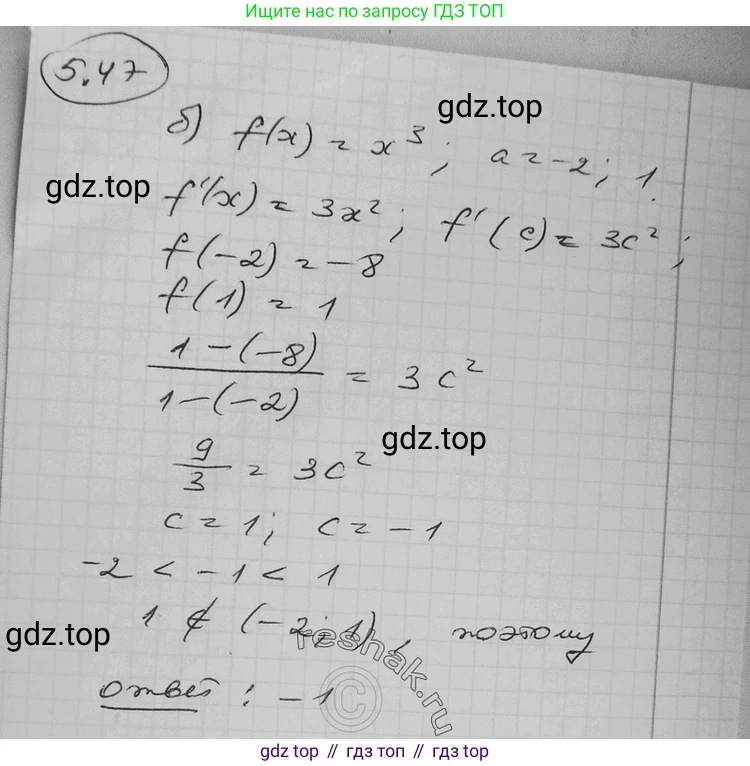 Ищите нас по запросу ГДЗ ТОП
5.47
gdz.top
б) f(x) = x³; a = -2; 1.
gdz.top
f'(x) = 3x²; f'(c) = 3c²;
f(-2) = -8
f(1) = 1
1-(-8)
1-(-2)
= 3c²
gdz.top
9/3 = 3c²
c = 1; c = -1
-2 < -1 < 1
1 ∉ (-2; 1), поэтому
gdz.top
reshak.ru
ответ: -1
©
gdz.top
gdz top // гдз топ // gdz top